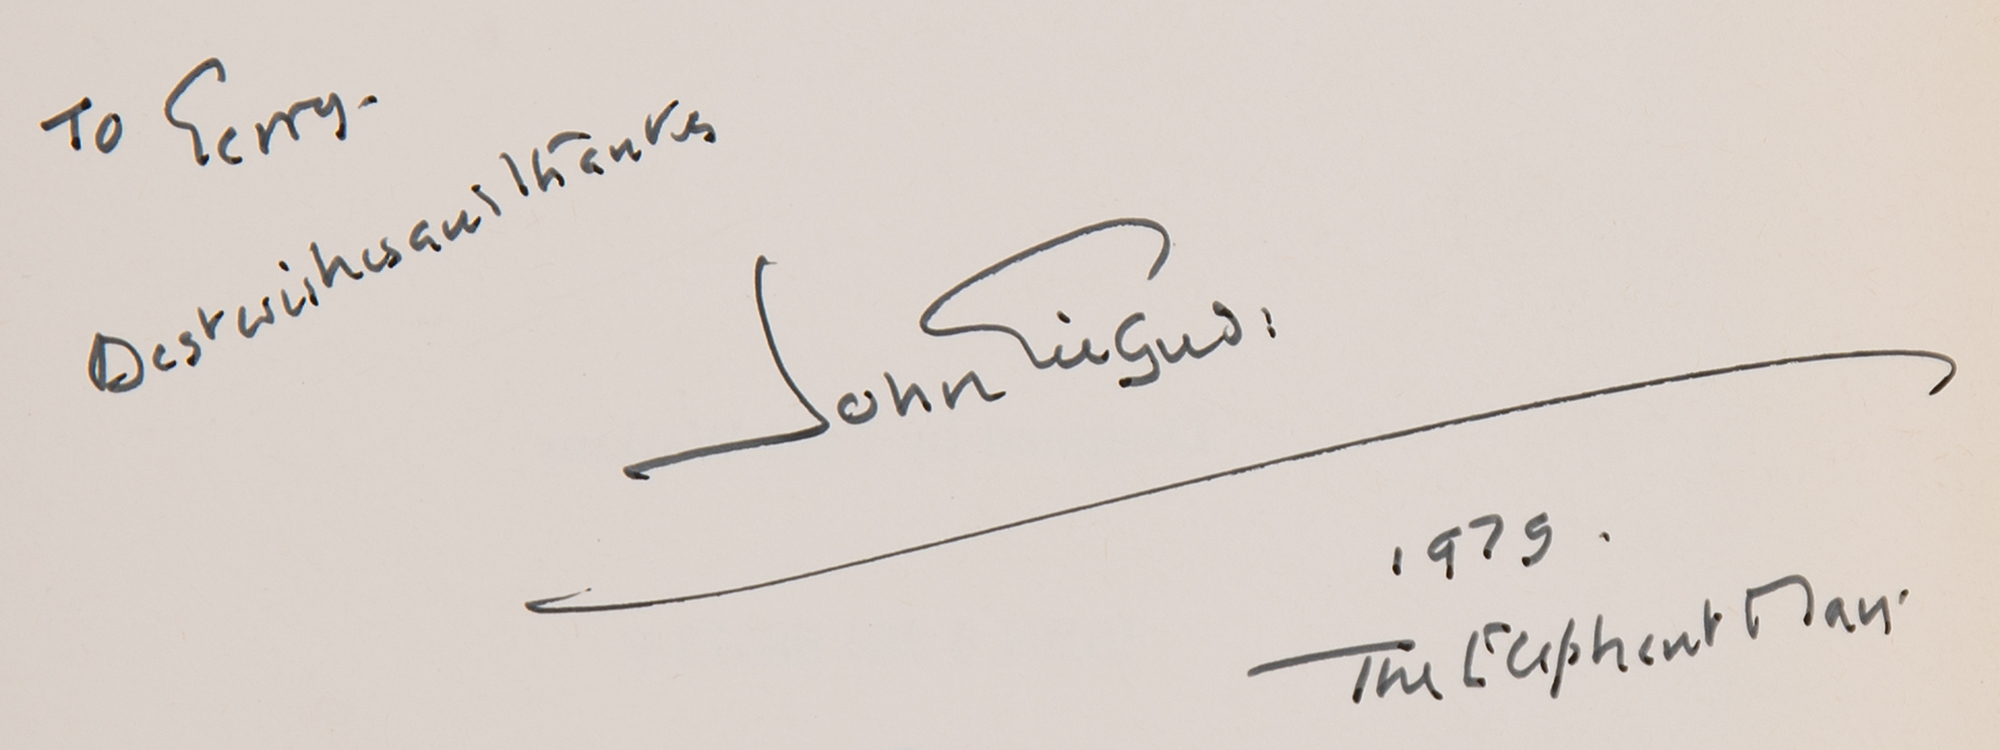 To Gerry.
Best wishes and thanks
John Gielgud.
1979.
The Elephant Man.